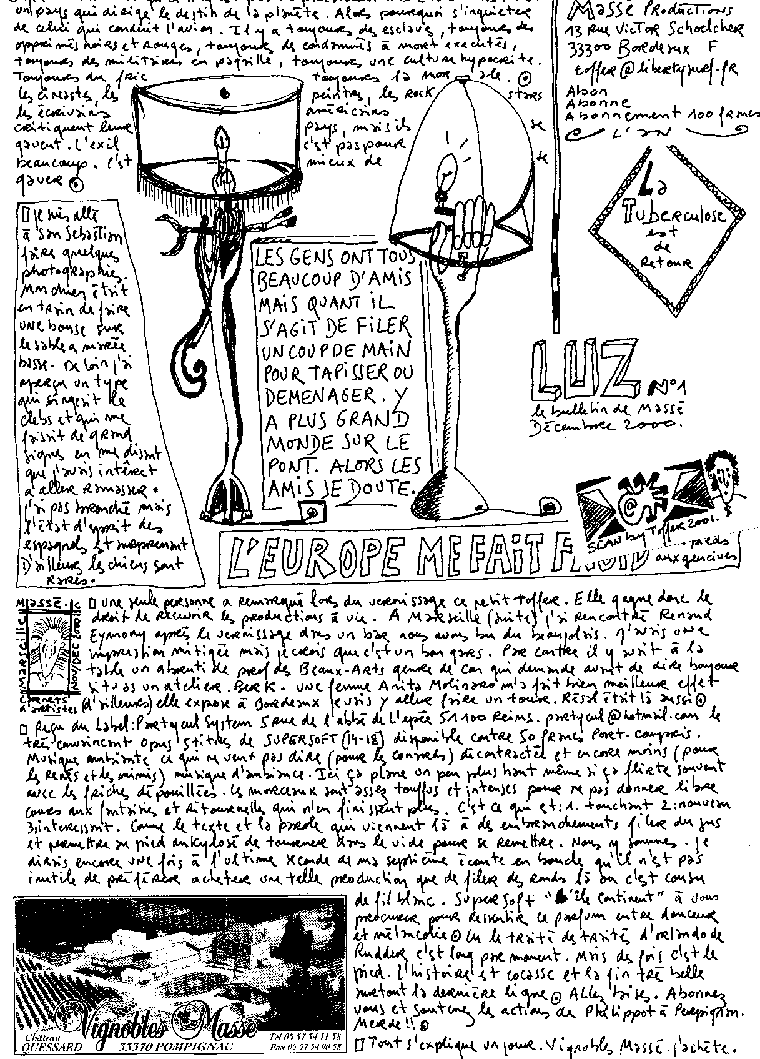 un pays qui dirige le destin de la planète. Alors pourquoi s'inquieter
de celui qui conduit l'avion. Il y a toujours des esclaves, toujours des
opprimés noirs et rouges, toujours de condamnés à mort executés,
toujours des militaires en pagaille, toujours une culture hypocrite.
Toujours du fric toujours la mor ale.
les cineastes, les peintres, les rock stars
les écrivains américains
critiquent leur pays, mais ils se
gavent. L'exil c'est pas pour
beaucoup. c'est mieux de
gaver
Je suis allé
à San Sebastian
faire quelques
photographies
Mon chien était
en train de faire
une bouse sur
le sable a marée
basse. De loin j'ai
aperçu un type
qui singeait le
clebs et qui me
faisait de grand
signes en me disant
que j'avais intérêt
a aller ramasser.
j'ai pas bronché mais
l'état d'esprit des
espagnols est surprenant
D'ailleurs les chiens sont
rares.
LES GENS ONT TOUS
BEAUCOUP D'AMIS
MAIS QUANT IL
S'AGIT DE FILER
UN COUP DE MAIN
POUR TAPISSER OU
DEMENAGER. Y
A PLUS GRAND
MONDE SUR LE
PONT. ALORS LES
AMIS JE DOUTE.
L'EUROPE ME FAIT FROID
Masse Productions
13 rue Victor Schoelcher
33300 Bordeaux F
toffer@libertysurf.fr
Abon
Abonne
Abonnement 100 francs
L'AN
La
Tuberculose
est
de
retour
LUZ N°1
le bulletin de Massé
Décembre 2000.
SCAN by Toffer 2001.
aux gencives
MASSÉ.
Marseille
Nov/Dec 2000
artistes
une seule personne a remarqué lors du vernissage ce petit Toffer. Elle gagne donc le
droit de recevoir les productions à vie. A Marseille (suite) j'ai rencontré Renaud
Eymony après le vernissage dans un bar nous avons bu du beaujolais. J'avais une
impression mitigée mais je crois que c'est un bon gars. Par contre il y avait à la
table un abruti de prof des Beaux-Arts genre de con qui demande avant de dire bonjour
si tu as un atelier. Berk. une femme Anita Molinaro m'a fait bien meilleure effet
(d'ailleurs) elle expose à Bordeaux je vais y aller faire un tour. Résd était là aussi
Reçu du Label: Partycul System 5 rue de l'abbé de l'apée 51100 Reims. partycul@hotmail.com le
très convaincant opus 5 titres de SUPERSOFT (14-18) disponible contre 50 francs Port. compris.
Musique ambiante ce qui ne veut pas dire (pour les connards) décontractée et encore moins (pour
les renés et les mimis) musique d'ambiance. Ici ça plane un peu plus haut même si ça flirte souvent
avec les friches dépouillées. Les morceaux sont assez touffus et intenses pour ne pas donner libre
cours aux fontaines et ritournelles qui n'en finissent plus. C'est ce qui est: 1. touchant 2: nouveau
3: interessant. Comme le texte et la parole qui viennent là à des embranchements filer du jus
et permettre au pied ankylosé de tourner dans le vide pour se remettre. Nous y sommes. Je
dirais encore une fois à l'ultime seconde de ma septième écoute en boucle qu'il n'est pas
inutile de préférer acheter une telle production que de filer des ronds là ou c'est cousu
de fil blanc. Supersoft "l'île continent" à vous
procurer pour ressentir ce parfum entre douceur
et mélancolie. Lu le traité de traités d'orlando de
Rudder c'est long par moment. Mais des fois c'est le
pied. L'histoire est cocasse et la fin très belle
surtout la dernière ligne. Allez bises. Abonnez
vous et soutenez les actions de Philippot à Perpignan.
Merde!!
Tout s'explique un jour. Vignobles Massé. j'achete.
Vignobles Massé
Château
QUESSARD
33370 POMPIGNAC
Tél 05 57 34 11 58